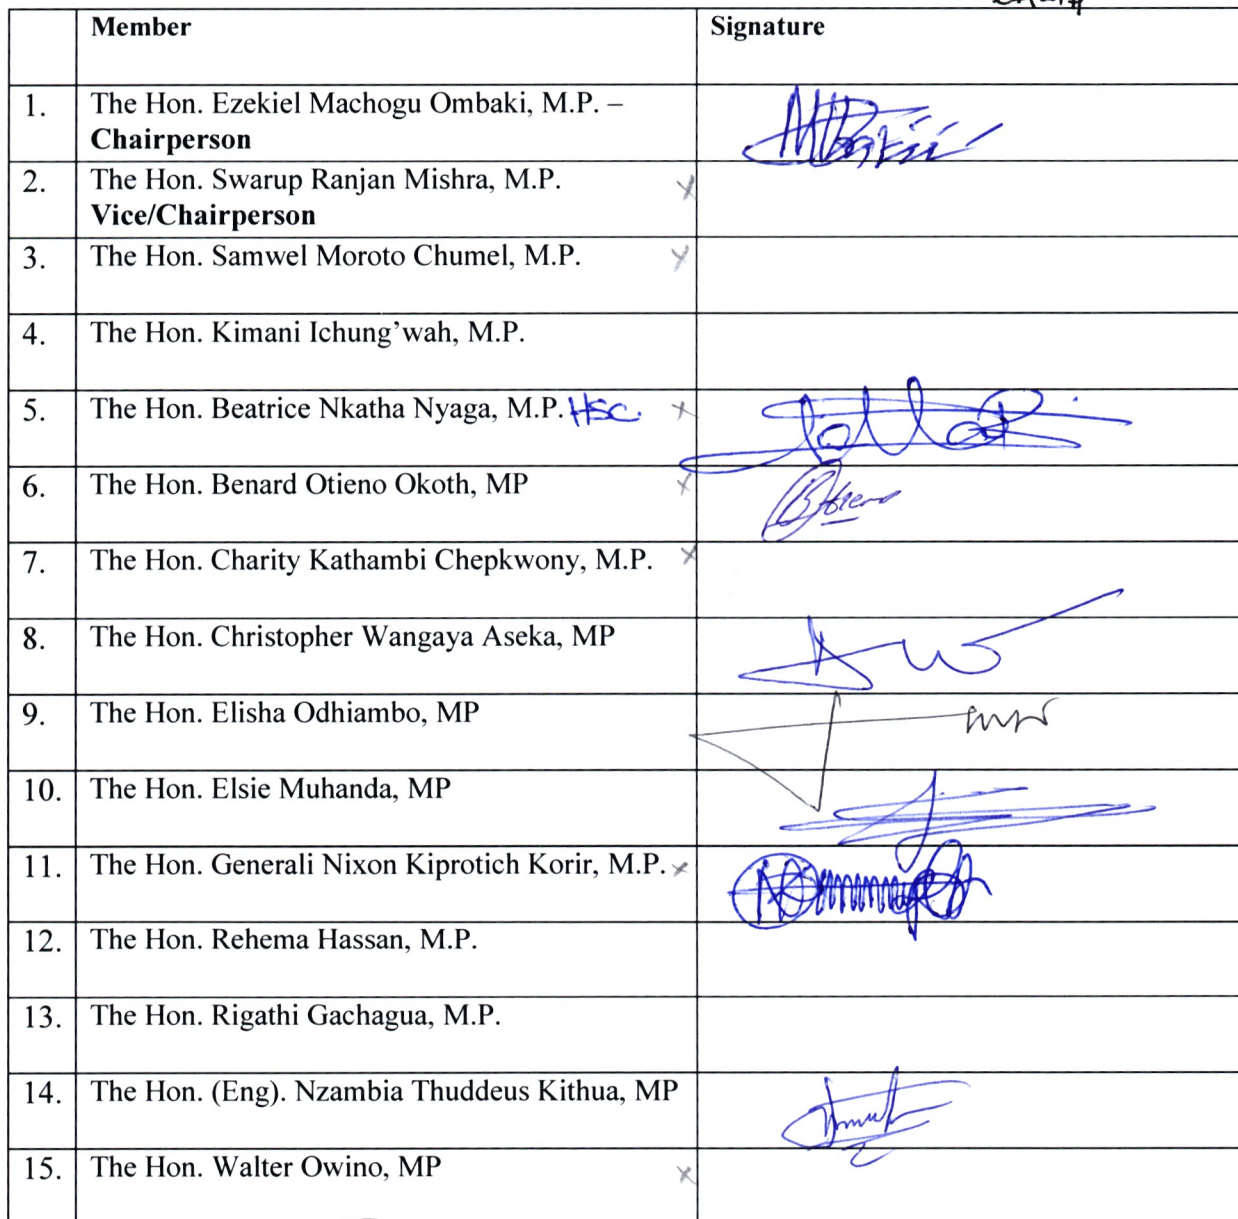 Member Signature
1. The Hon. Ezekiel Machogu Ombaki, M.P. –
Chairperson
2. The Hon. Swarup Ranjan Mishra, M.P.
Vice/Chairperson
3. The Hon. Samwel Moroto Chumel, M.P.
4. The Hon. Kimani Ichung’wah, M.P.
5. The Hon. Beatrice Nkatha Nyaga, M.P. HSC.
6. The Hon. Benard Otieno Okoth, MP
7. The Hon. Charity Kathambi Chepkwony, M.P.
8. The Hon. Christopher Wangaya Aseka, MP
9. The Hon. Elisha Odhiambo, MP
10. The Hon. Elsie Muhanda, MP
11. The Hon. Generali Nixon Kiprotich Korir, M.P.
12. The Hon. Rehema Hassan, M.P.
13. The Hon. Rigathi Gachagua, M.P.
14. The Hon. (Eng). Nzambia Thuddeus Kithua, MP
15. The Hon. Walter Owino, MP